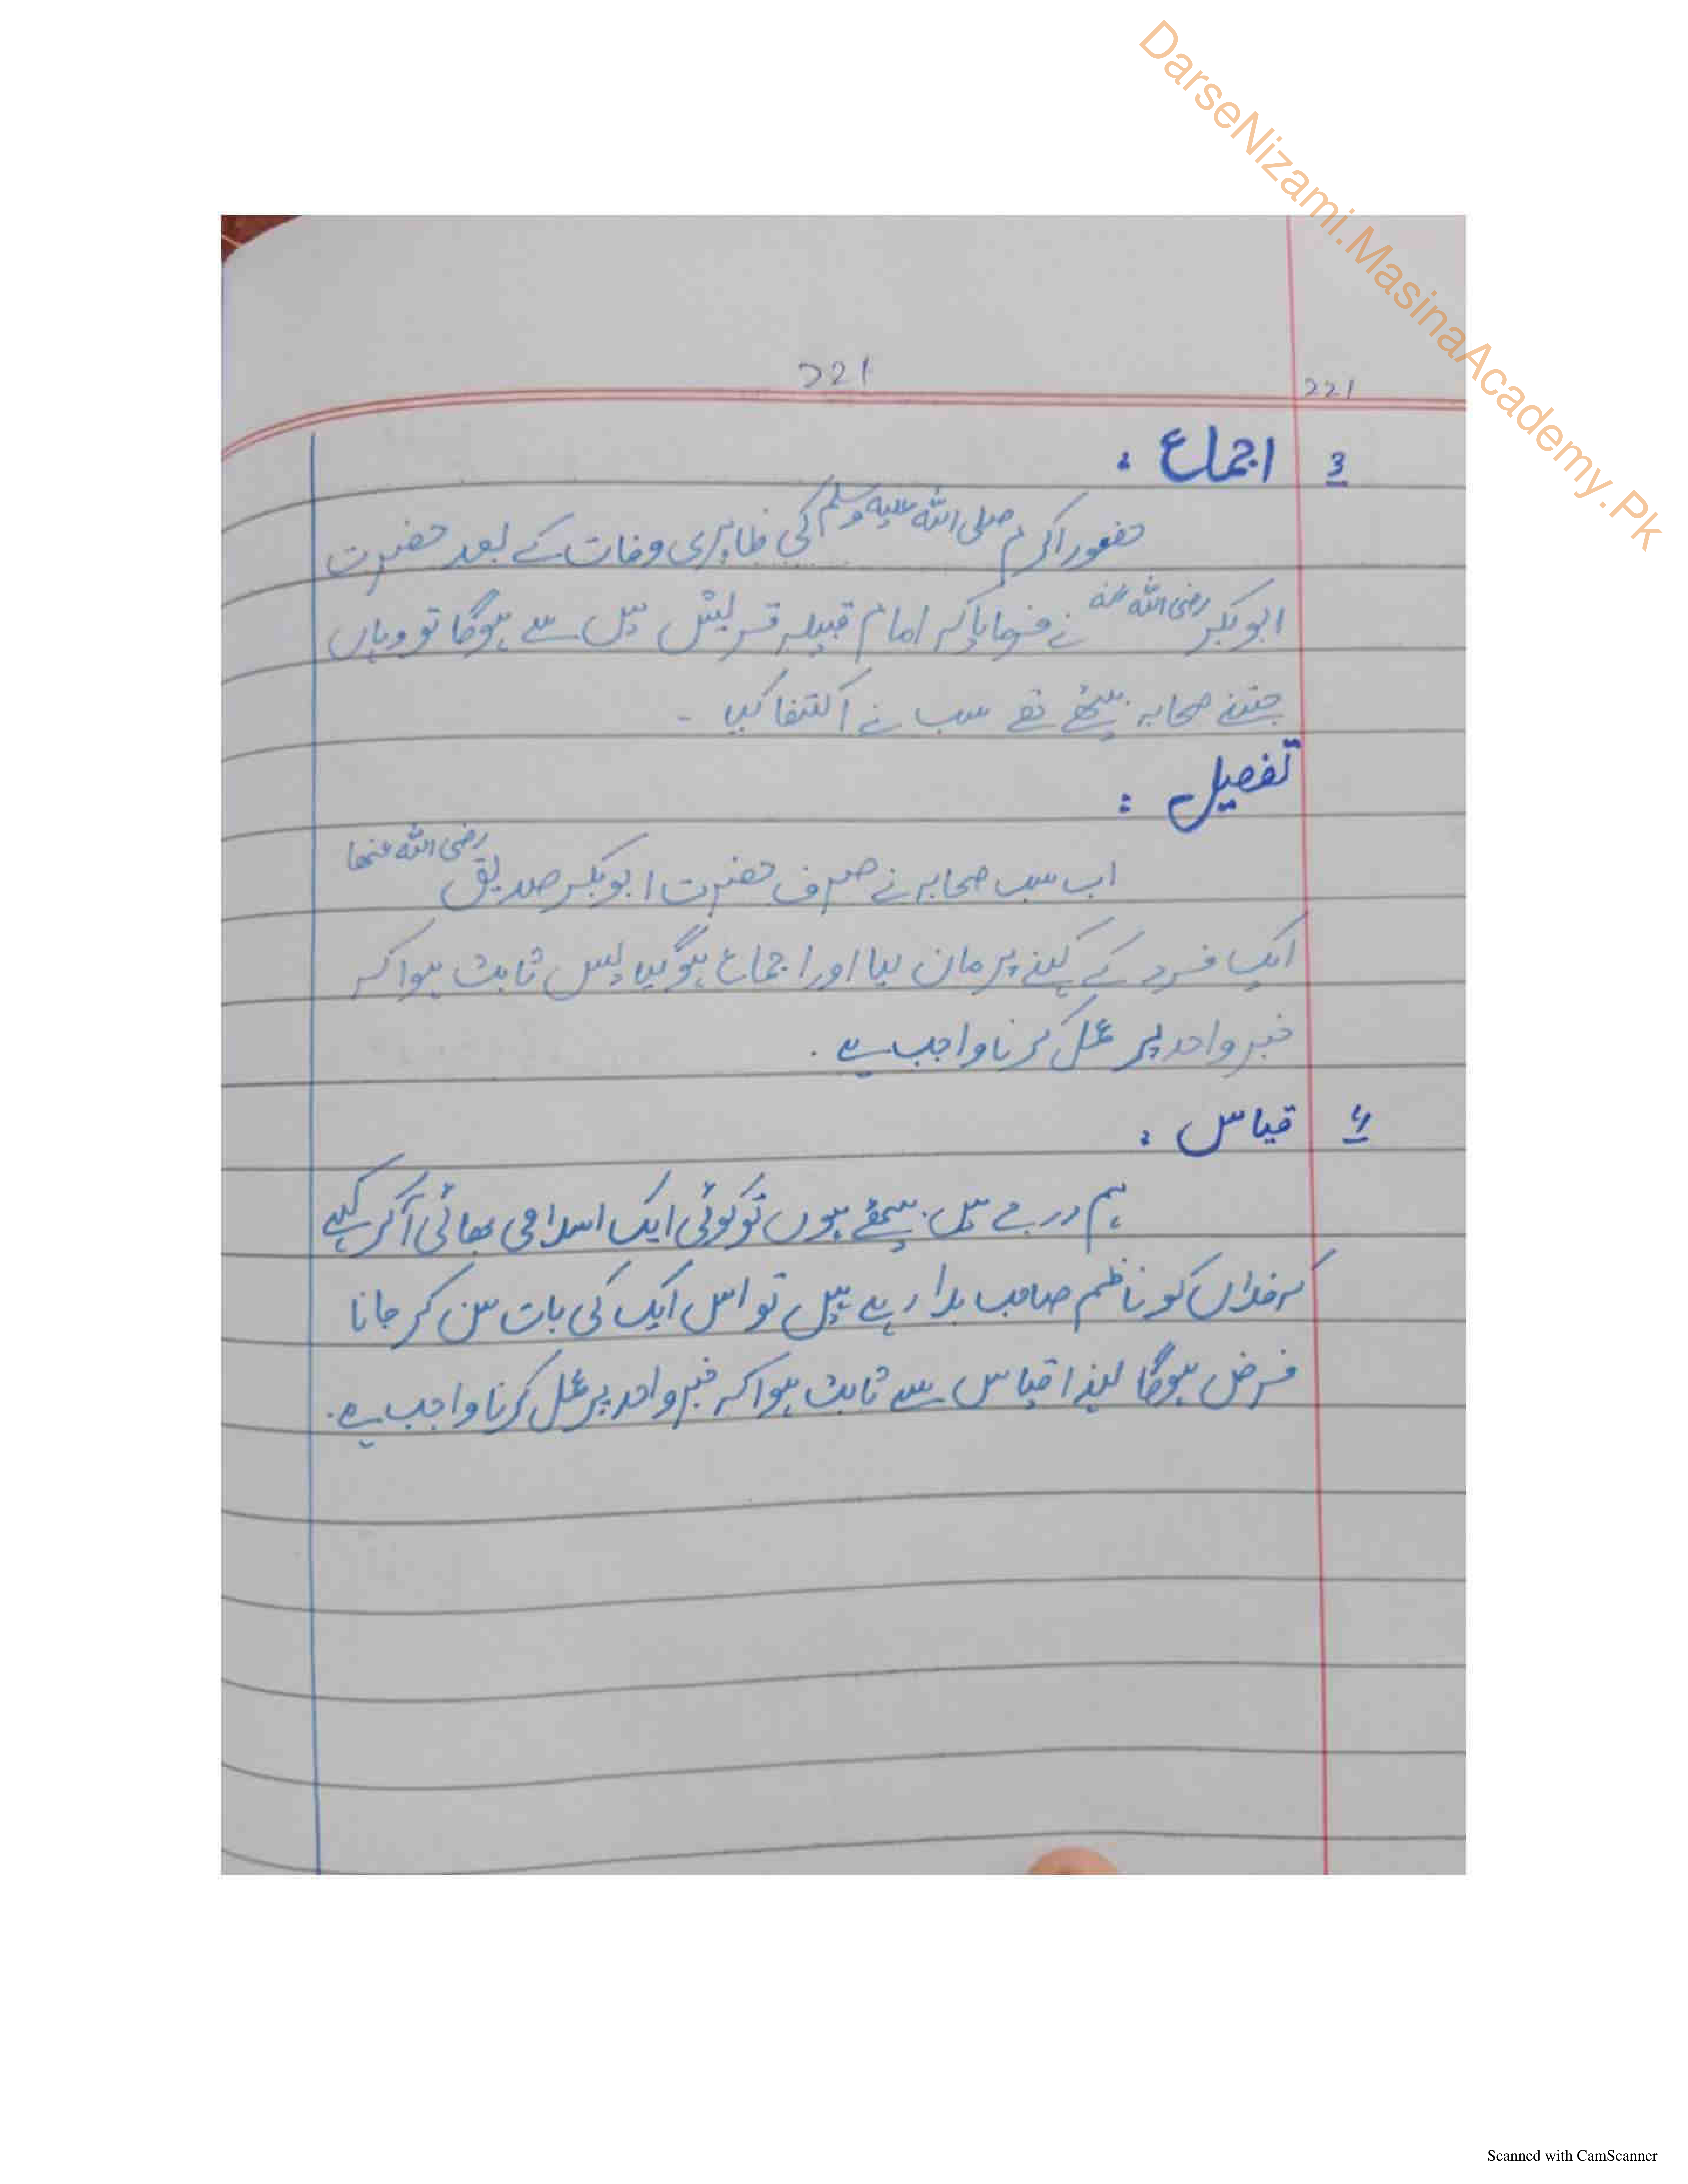 DarseNizami.MasinaAcademy.Pk
221
221
3 اجماع :
حضور اکرم صلی اللہ علیہ وسلم کی ظاہری وفات کے بعد حضرت
ابوبکر رضی اللہ عنہ نے فرمایا کہ امام قبیلہ قریش میں سے ہوگا تو وہاں
جتنے صحابہ بیٹھے تھے سب نے اکتفا کیا -
تفصیل :
اب سب صحابہ نے صرف حضرت ابوبکر صدیق رضی اللہ عنھا
ایک فرد کے کہنے پر مان لیا اور اجماع ہوگیا پس ثابت ہوا کہ
خبر واحد پر عمل کرنا واجب ہے .
4 قیاس :
ہم درجے میں بیٹھے ہوں تو کوئی ایک اسلامی بھائی آکر کہے
کہ فلاں کو ناظم صاحب بلا رہے ہیں تو اس ایک کی بات سن کر جانا
فرض ہوگا لہذا قیاس سے ثابت ہوا کہ خبر واحد پر عمل کرنا واجب ہے .
Scanned with CamScanner